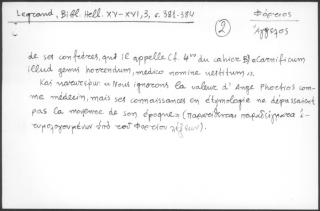 Legrand, Bibl. Hell. XV-XVI, 3, σ. 381-384
2
Φόρτιος
Ἄγγελος
de ses confrères, qu'il appelle (f. 4ʳᵒ du cahier B) «Carnificum
illud genus horrendum, medico nomine vestitum».
Καὶ κατωτέρω: «Nous ignorons la valeur d'Ange Phortios com-
me médecin, mais ses connaissances en étymologie ne dépassaient
pas la moyenne de son époque» (παρατίθενται παραδείγματα ἐ-
τυμολογουμένων ὑπὸ τοῦ Φορτίου λέξεων).